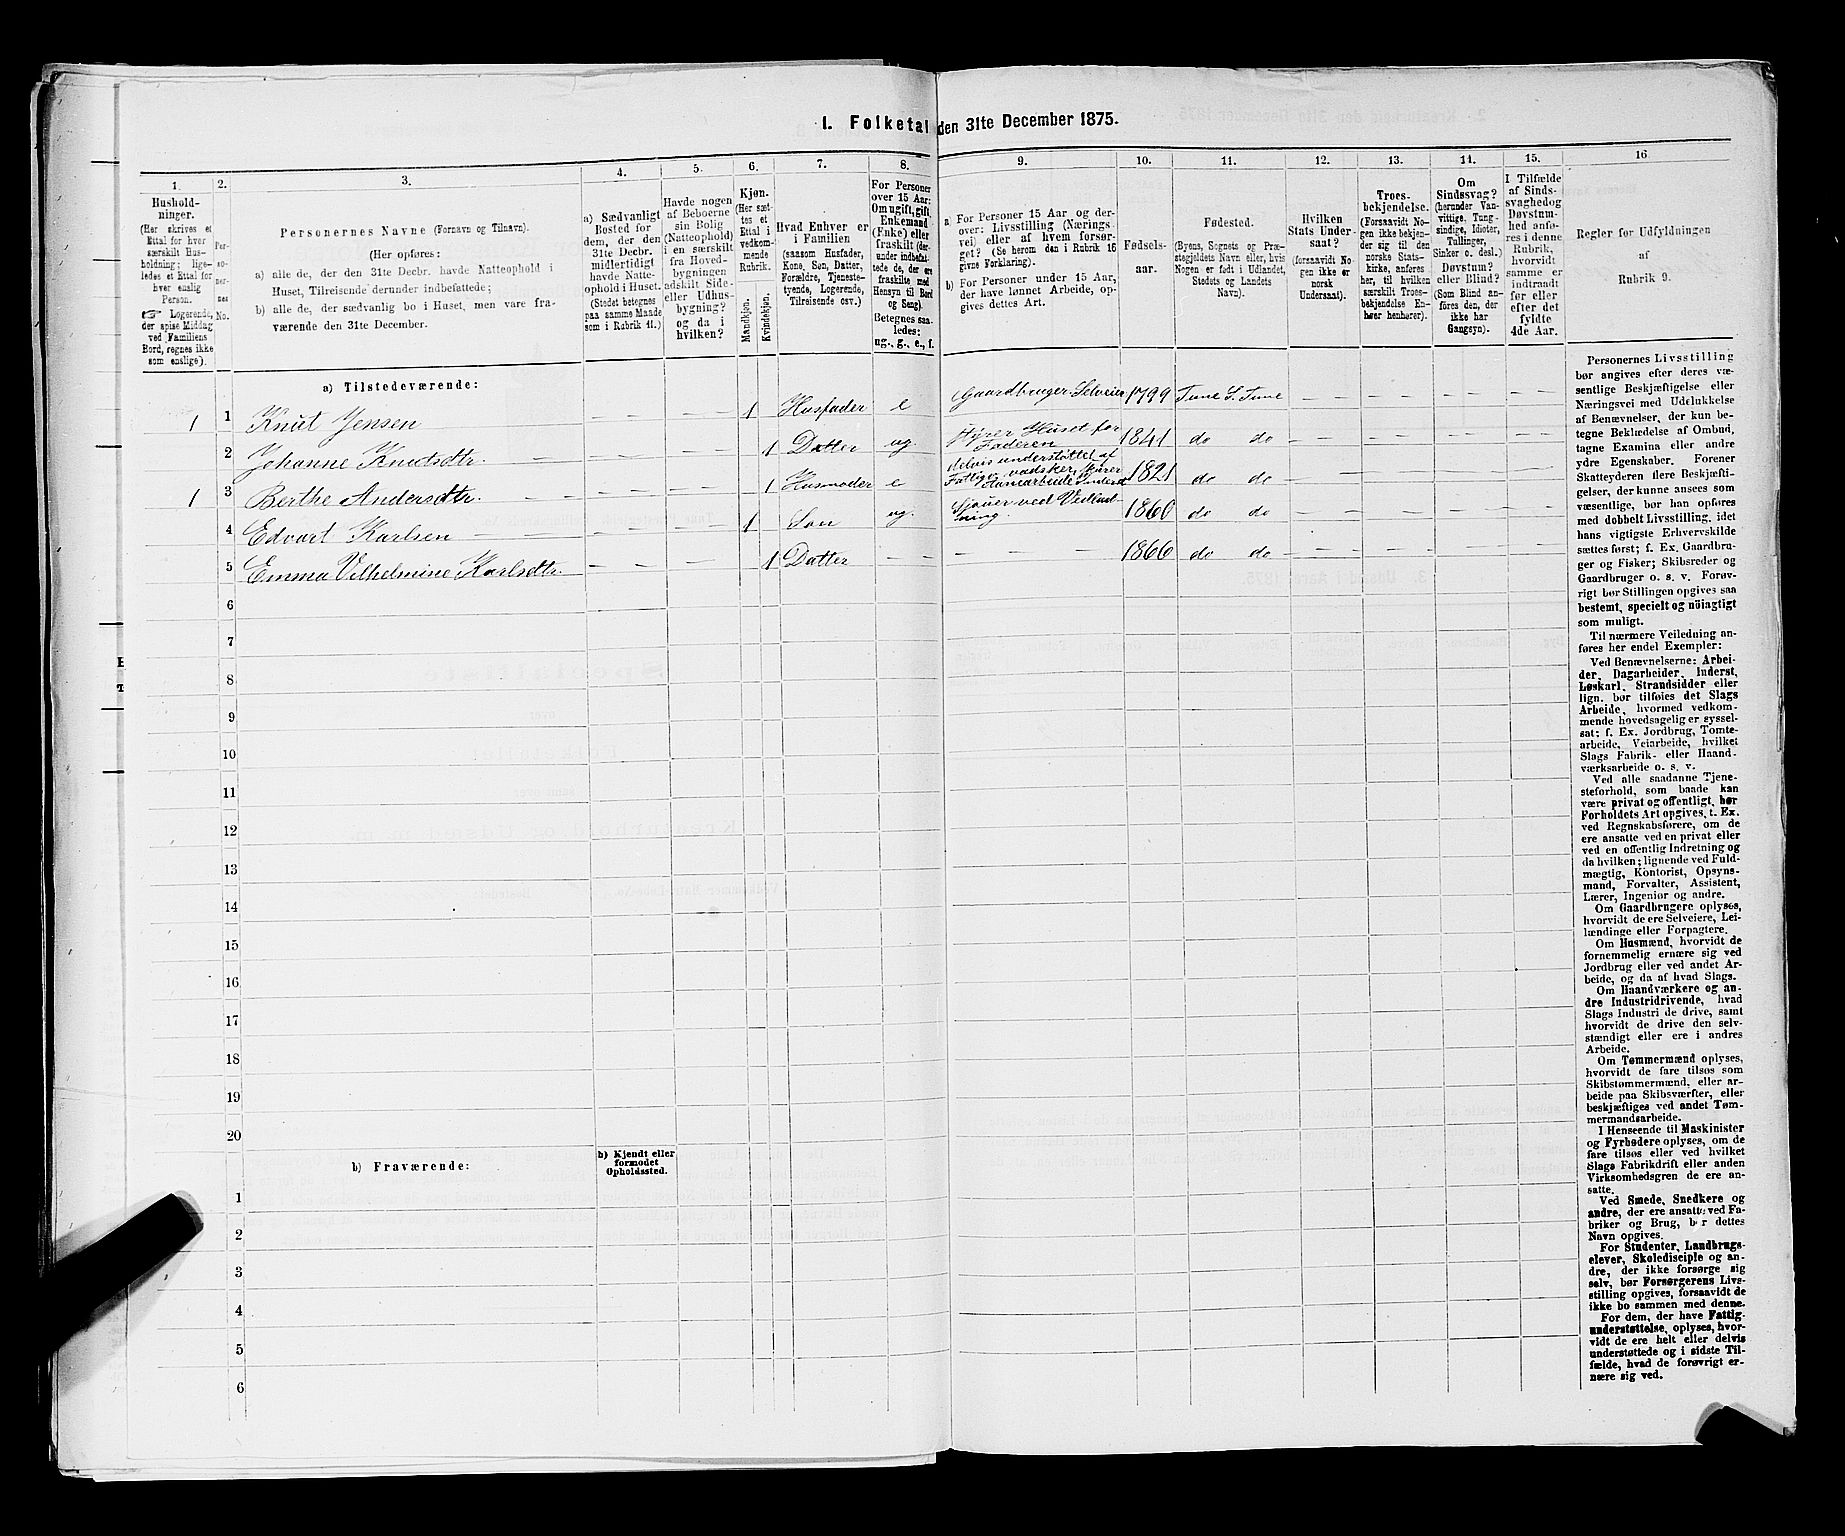 1. Folketal den 31te December 1875.
1.
Hushold-
ninger.
(Her skrives et
Ettal for hver
særskilt Hus-
holdning; lige-
ledes et Ettal for
hver enslig
Person.
☞ Logerende,
der spise Middag
ved Familiens
Bord, regnes ikke
som enslige).
2.
Per-
so-
ner-
nes
No.
3.
Personernes Navne (Fornavn og Tilnavn).
(Her opføres:
a) alle de, der den 31te Decbr. havde Natteophold i
Huset, Tilreisende derunder indbefattede;
b) alle de, der sædvanlig bo i Huset, men vare fra-
værende den 31te December.
4.
a) Sædvanligt
Bosted for
dem, der den
31te Decbr.
midlertidigt
havde Natte-
ophold i Huset.
(Stedet betegnes
paa samme Maade
som i Rubrik 11.)
5.
Havde nogen
af Beboerne
sin Bolig
(Natteophold)
i en særskilt
fra Hoved-
bygningen
adskilt Side-
eller Udhus-
bygning?
og da i
hvilken?
6.
Kjøn.
(Her sæt-
tes et
Ettal i
vedkom-
mende
Rubrik.
Mandkjøn.
Kvindekjøn.
7.
Hvad Enhver er
i Familien
(saasom Husfader,
Kone, Søn, Datter,
Forældre, Tjeneste-
tyende, Logerende,
Tilreisende osv.)
8.
For Personer
over 15 Aar:
Om ugift, gift,
Enkemand
(Enke) eller
fraskilt (der-
under indbefat-
tede de, der ere
fraskilte med
Hensyn til Bord
og Seng).
Betegnes saa-
ledes:
ug., g., e., f.
9.
a) For Personer 15 Aar og der-
over: Livsstilling (Nærings-
vei) eller af hvem forsør-
get? (Se herom den i Rubrik 16
givne Forklaring).
b) For Personer under 15 Aar,
der have lønnet Arbeide, op-
gives dettes Art.
10.
Fødsels-
aar.
11.
Fødested.
(Byens, Sognets og Præ-
stegjeldets Navn eller, hvis
Nogen er født i Udlandet,
Stedets og Landets
Navn).
12.
Hvilken
Stats Under-
saat?
(forsaavidt No-
gen ikke er
norsk
Undersaat).
13.
Troes-
bekjendelse.
(Forsaavidt No-
gen ikke bekjen-
der sig til den
norske Stats-
kirke, anføres
her, til hvilken
særskilt Troes-
bekjendelse En-
hver henhører).
14.
Om
Sindssvag?
(herunder Van-
vittige, Tung-
sindige, Idioter,
Tullinger,
Sinker o. desl.)
Døvstum?
eller Blind?
(Som Blind an-
føres den, der
ikke har
Gangsyn).
15.
I Tilfælde
af Sinds-
svaghed og
Døvstum-
hed anfø-
res i denne
Rubrik,
hvorvidt
samme er
indtraadt
før eller
efter det
fyldte
4de Aar.
16
Regler for Udfyldningen
af
Rubrik 9.
a) Tilstedeværende:
1 1 Knut Jensen — — — — 1 Husfader e Gaardbruger Selveier 1799 Tune S. Tune — — — —
2 Johanne Knutsdtr. — — — — 1 Datter ug. Styrer Huset for Faderen 1841 do do — — — —
1 3 Berthe Andersdtr. — — — 1 Husmoder e delvis understøttet af Fattigv. vadsker, Haandarbeide 1821 do do — — — —
4 Edvart Karlsen — — — — 1 Søn ug. Sjouer ved Vedlad-ning. 1860 do do — — — —
5 Emma Vilhelmine Karlsdtr. — — — — 1 Datter — — — — 1866 do do — — — —
6
7
8
9
10
11
12
13
14
15
16
17
18
19
20
b) Fraværende:
b) Kjendt eller
formodet
Opholdssted.
1
2
3
4
5
6
Personernes Livsstilling
bør angives efter deres væ-
sentlige Beskjæftigelse eller
Næringsvei med Udelukkelse
af Benævnelser, der kun be-
tegne Beklædelse af Ombud,
tagne Examina eller andre
ydre Egenskaber. Forener
Skatteyderen flere Beskjæfti-
gelser, der kunne ansees som
væsentlige, bør han opføres
med dobbelt Livsstilling, idet
hans vigtigste Erhvervskilde
sættes først; f. Ex. Gaardbru-
ger og Fisker; Skibsreder og
Gaardbruger o. s. v. Forøv-
rigt bør Stillingen opgives saa
bestemt, specielt og nöiagtigt
som muligt.
Til nærmere Veiledning an-
føres her endel Exempler:
Ved Benævnelserne: Arbei-
der, Dagarbeider, Inderst,
Løskarl, Strandsidder eller
lign. bør tilføies det Slags
Arbeide, hvormed vedkom-
mende hovedsagelig er syssel-
sat; f. Ex. Jordbrug, Tomte-
arbeide, Veiarbeide, hvilket
Slags Fabrik- eller Haand-
værksarbeide o. s. v.
Ved alle saadanne Tjene-
steforhold, som baade kan
være privat og offentligt, bør
Forholdets Art opgives, t. Ex.
ved Regnskabsførere, om de
ere ansatte ved en privat eller
ved en offentlig Indretning og
da hvilken; lignende ved Fuld-
mægtig, Kontorist, Opsyns-
mand, Forvalter, Assistent,
Lærer, Ingeniør og andre.
Om Gaardbrugere oplyses,
hvorvidt de ere Selveiere, Lei-
lændinge eller Forpagtere.
Om Husmænd, hvorvidt de
fornemmelig ernære sig ved
Jordbrug eller ved andet Ar-
beide, og da af hvad Slags.
Om Haandværkere og an-
dre Industridrivende, hvad
Slags Industri de drive, samt
hvorvidt de drive den selv-
stændigt eller ere i andres
Arbeide.
Om Tømmermænd oplyses,
hvorvidt de fare tilsøs som
Skibstømmermænd, eller ar-
beide paa Skibsværfter, eller
beskjæftiges ved andet Tøm-
mermandsarbeide.
I Henseende til Maskinister
og Fyrbødere oplyses, om de
fare tilsøs eller ved hvilket
Slags Fabrikdrift eller anden
Virksomhedsgren de ere an-
satte.
Ved Smede, Snedkere og
andre, der ere ansatte ved Fa-
briker og Brug, bør dettes
Navn opgives.
For Studenter, Landbrugs-
elever, Skoledisciple og an-
dre, der ikke forsørge sig
selv, bør Forsørgerens Livs-
stilling opgives, forsaavidt de
ikke bo sammen med denne.
For dem, der have Fattig-
understøttelse, oplyses, hvor-
vidt de ere helt eller delvis
understøttede og i sidste Til-
fælde, hvad de forøvrigt er-
nære sig ved.